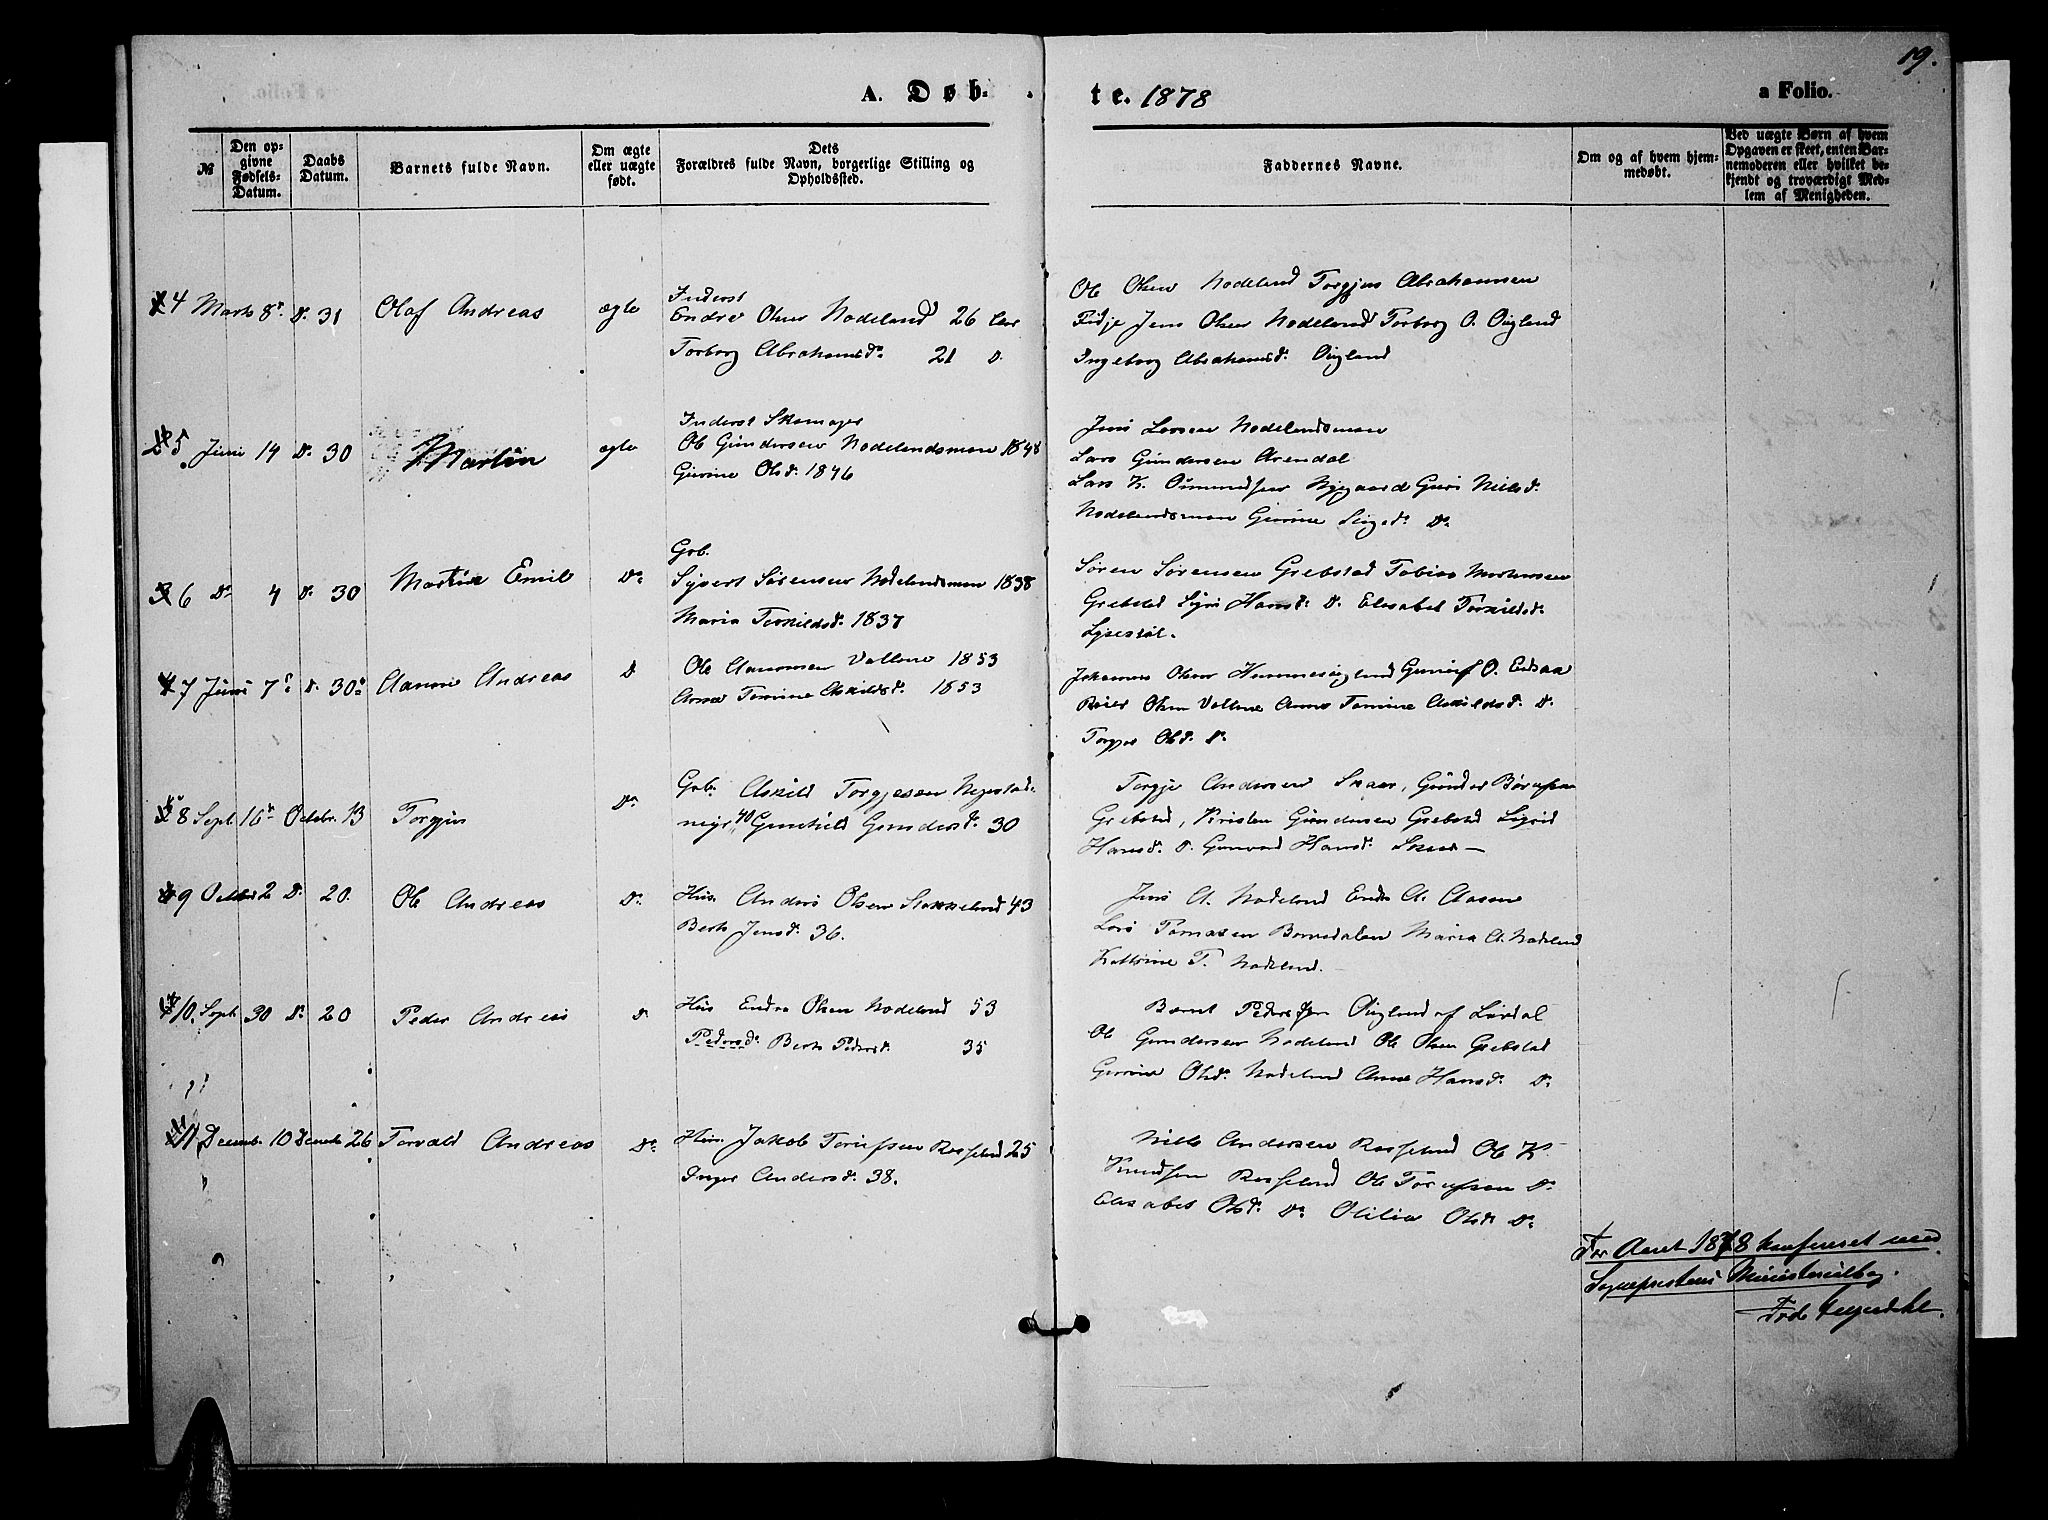 19.
A. Døb-
te. 1878
a Folio.
№
Den op-
givne
Fødsels-
Datum.
Daabs
Datum.
Barnets fulde Navn.
Om ægte
eller uægte
født.
Dets
Forældres fulde Navn, borgerlige Stilling og
Opholdssted.
Faddernes Navne.
Om og af hvem hjem-
medøbt.
Ved uægte Børn af hvem
Opgaven er skeet, enten Bar-
nemoderen eller hvilket be-
kjendt og troværdigt Med-
lem af Menigheden.
4 Marts 8de Do 31 Olaf Andreas ægte
Inderst
Endre Olsen Nodeland 26 Aar
Torborg Abrahamsdr 21 D.
Ole Olsen Nodeland Torgjus Abrahamsen
Fidje Jens Olsen Nodeland Torborg O. Øigland
Ingeborg Abrahamsdr. Øigland
5 Juni 14 Do 30 Martin ægte
Inderst Skomager
Ole Gundersen Nodelandsmoen 1848
Gurine Olsdr. 1846
Jens Larsen Nodelandsmoen
Lars Gundersen Arendal
Lars K. Omundsen Nygaard Guri Nilsd.
Nodelandsmoen Gurine Do
6 Do 4 Do 30 Martin Emil Do
Grb.
Syvert Sørensen Nodelandsmoen 1838
Maria Terkildsd. 1837
Søren Sørensen Grebstad Tobias Mortensen
Grebstad Siri Hansd. D. Elisabet Terkildsd.
Lysestøl.
7 Juni 7de Do 30te Aanon Andreas D
Ole Aanonsen Vollene 1853
Anne Tomine Askildsd. 1853
Johannes Olsen Hummeseigland O.
Reier Olsen Vollene Anne Tomine Askildsd. D.
Torgjer Olsd. D.
8 Sept. 16de Octobr. 13 Torgjus Do
Grb. Askild Torgjesen
40 Gunhild Gundersd. 30
Torgje Andersen Skaar, Gunder
Grebstad, Kristen Gundersen Grebstad Sigrid
Hansd. D. Gunvord Hansd. Skaar —
9 October 2 Do 20. Ole Andreas Do
Hus. Anders Olsen Stokkeland 43
Berte Jensd. 36.
Jens A. Nodeland Endre A. Aasen
Lars Tomasen Maria A. Nodeland
Katrine T. Nodeland.
10. Sept. 30 Do 20 Peder Andreas D
Hus Endre Olsen Nodeland 53
Pedersd. Berte Pedersd. 35
Bernt Pedersen Øigland af
Ole Gundersen Nodeland Ole Olsen Grebstad
Gurine Olsd. Nodeland Anne Hansd. D.
11 Decemb. 10 Decemb. 26 Torvald Andreas Do
Hus. Jakob Torjussen Rosseland 25
Inger Andersd. 38.
Nils Andersen Rosseland Ole K.
Knudsen Rosseland Ole Torjussen Do
Elisabet Olsd. Do Otilia Olsd. Do
For Aaret 1878 konfereret med
Sognepræstens Ministerialbog.